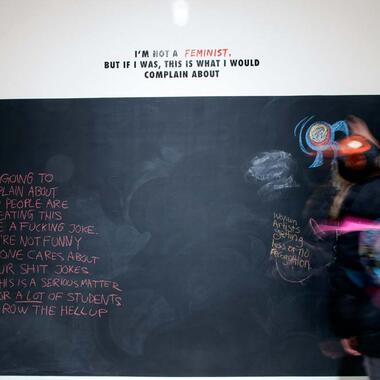 I'M NOT A FEMINIST.
BUT IF I WAS, THIS IS WHAT I WOULD
COMPLAIN ABOUT
GOING TO
PLAIN ABOUT
PEOPLE ARE
EATING THIS
E A FUCKING JOKE.
'RE NOT FUNNY
ONE CARES ABOUT
UR SHIT JOKES
THIS IS A SERIOUS MATTER
OR A LOT OF STUDENTS
ROW THE HELL UP
Women
Artists
getting
less or no
Recognition